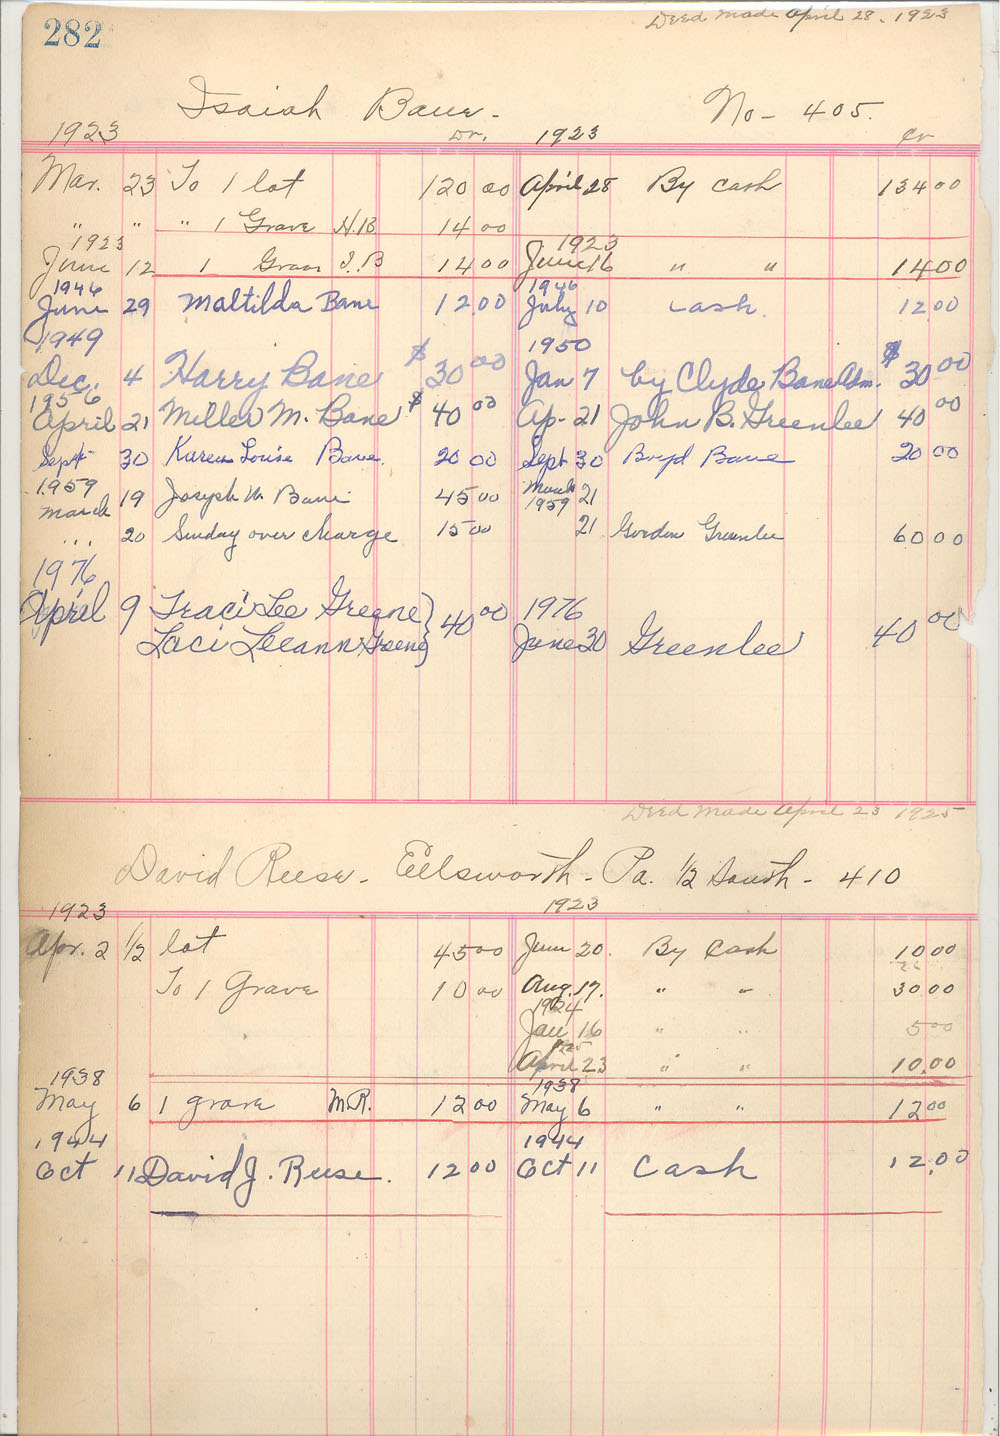 282
Deed Made April 28, 1923
Isaiah Bane - No - 405.
1923 Dr. 1923 Cr
Mar. 23 To 1 lot 120 00 April 28 By Cash 134 00
" " " 1 Grave H.B 14 00
1923 1923
June 12 1 Grave I.B 14 00 June 16 " " 14 00
1946 1946
June 29 Maltilda Bane 12.00 July 10 Cash. 12 00
1949 1950
Dec. 4 Harry Bane $30 00 Jan 7 by Clyde Bane Adm. $30 00
1956
April 21 Miller M. Bane $40 00 Ap- 21 John B. Greenlee 40 00
Sept 30 Karen Louise Bane. 20 00 Sept 30 Boyd Bane 20 00
1959 March
March 19 Joseph W. Bane 45 00 1959 21
" 20 Sunday over charge 15 00 21 Gordon Greenlee 60 00
1976
April 9 Traci Lee Greene } 40 00 1976
Laci Leeann Greene June 30 Greenlee 40 00
Deed Made April 23 1925
David Reese - Ellsworth - Pa. 1/2 South - 410
1923 1923
Apr. 2 1/2 lot 45 00 June 20. By Cash 10 00
To 1 Grave 10 00 Aug. 17. " " 30 00
1924
Jan 16 " " 5 00
1925
April 23 " " 10.00
1938 1938
May 6 1 grave M.R. 12 00 May 6 " " 12 00
1944 1944
Oct 11 David J. Reese. 12 00 Oct 11 Cash 12.00